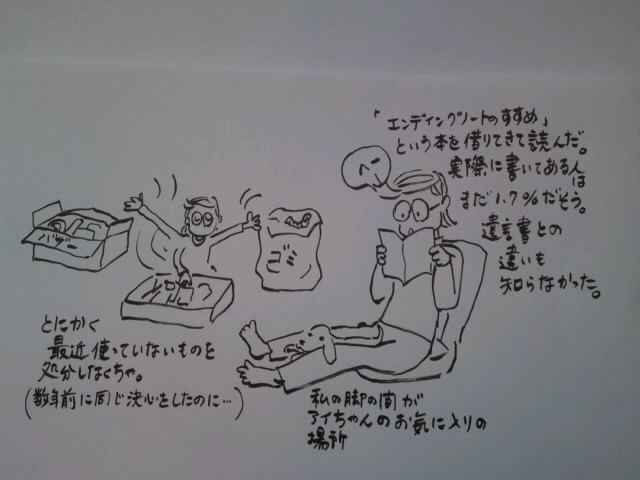 「エンディングノートのすすめ」
という本を借りてきて読んだ。
実際に書いてある人は
まだ1.7%だそう。
遺言書との
違いも
知らなかった。
へー
バザー
ゴミ
とにかく
最近使っていないものを
処分しなくちゃ。
(数年前に同じ決心をしたのに…)
私の脚の間が
アイちゃんのお気に入りの
場所